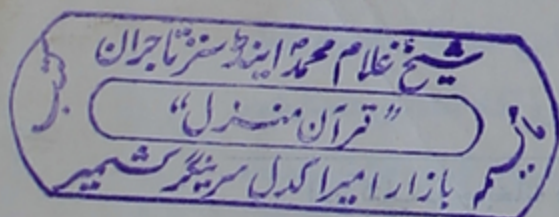 شیخ غلام محمد اینڈ سنز تاجران
کتب
"قرآن منزل"
مائسمہ
بازار امیرا کدل سرینگر کشمیر